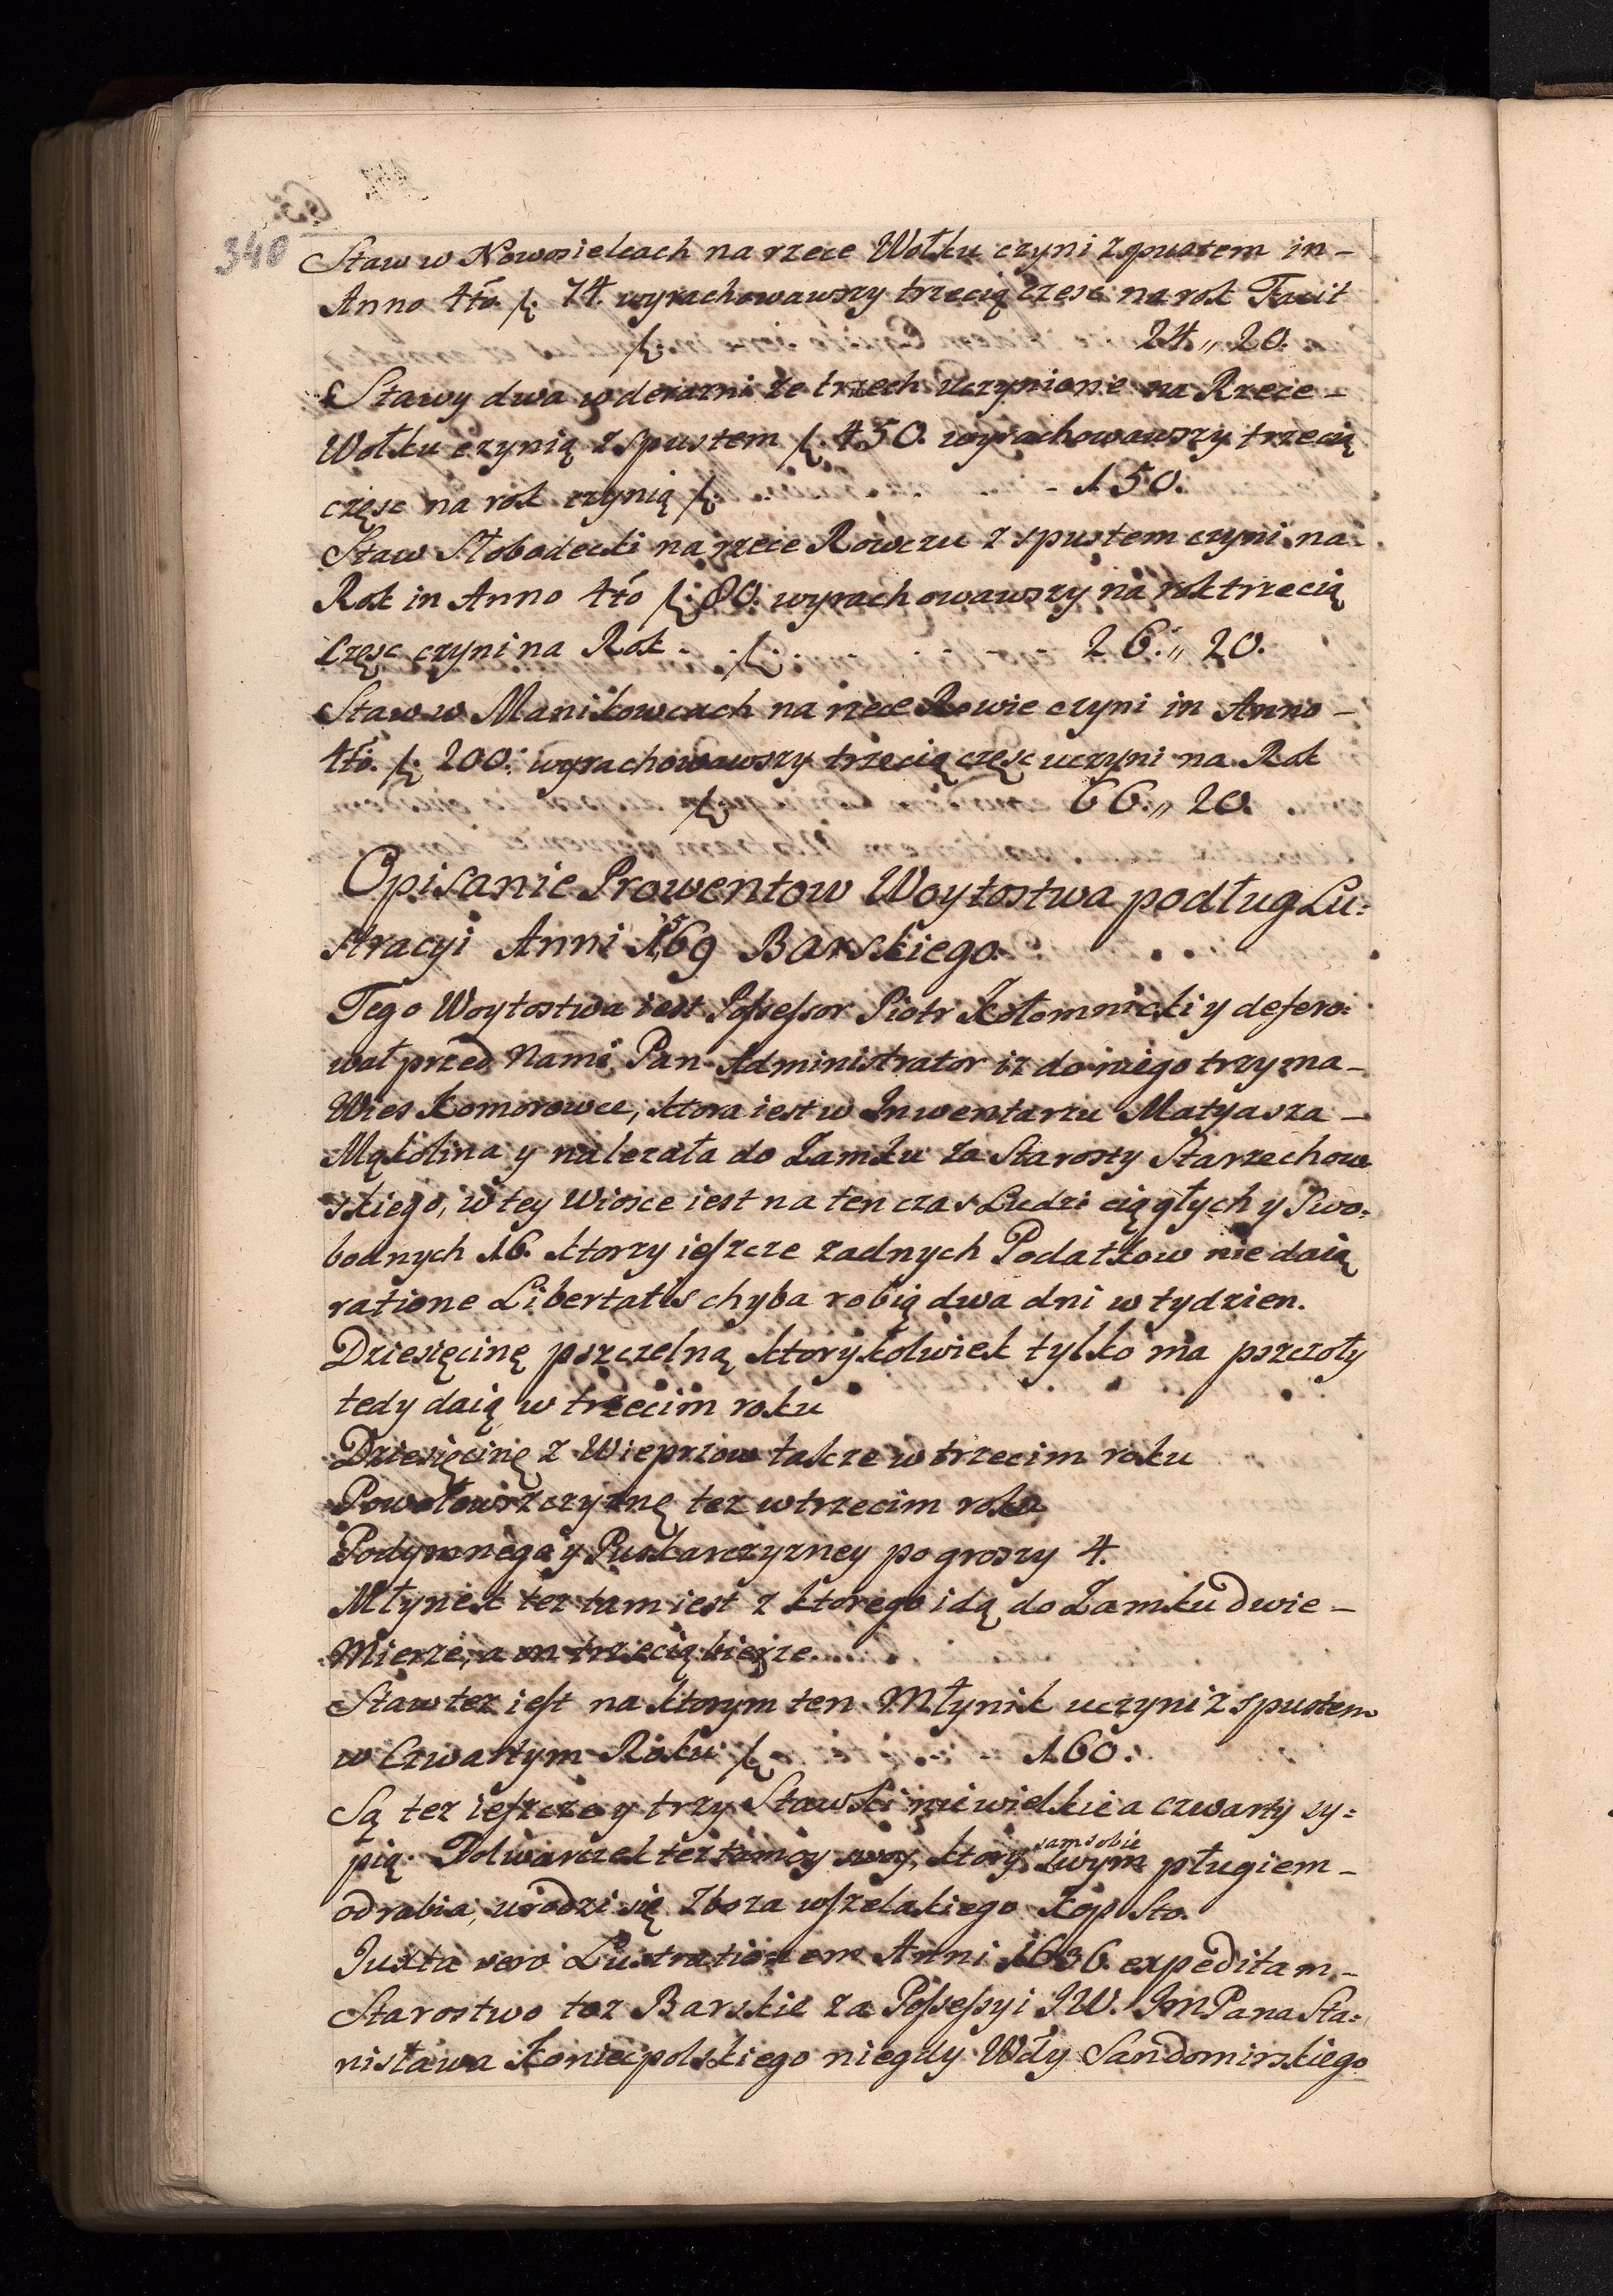 340
Staw w Nowosielcach na rzece Wołku czyni z spustem in-
Anno 4to. f. 74. wyrachowawszy trzecią częsc na rok Facit
f. 24 „ 20.
Stawy dwa w derazni ze trzech uczynione na Rzece-
Wołku czynią z spustem f. 450. wyrachowawszy trzecią
częsc na rok czynią f. - - - 150.
Staw Słobodecki na rzece Rowczu z spustem czyni na-
Rok in Anno 4to f. 80. wyrachowawszy na rok trzecią
Częsc czyni na Rok - - f. - - - - - - 26. „ 20.
Staw w Manikowcach na rzece Rowie czyni in Anno-
4to. f. 200. wyrachowawszy trzecią częsc uczyni na Rok
f. 66. „ 20.
Opisanie Prowentow Woytostwa podług Lu:
stracyi Anni 1569 Barskiego.
Tego Woytostwa iest Possessor Piotr Kołomnicki y defero:
wał przed Nami Pan Administrator iz do niego trzyma-
Wies Komorowce, ktora iest w Inwentarzu Matyasza-
Mąkolina y nalezała do Zamku za Starosty Starzechow
skiego, w tey Wiosce iest na ten czas Ludzi ciągłych y Swo:
bodnych 16. ktorzy ieszcze zadnych Podatkow nie daią
ratione Libertatis chyba robią dwa dni w tydzien.
Dziesięcinę pszczelną ktorykolwiek tylko ma pszczoły
tedy daią w trzecim roku
Dziesięcinę z Wieprzow takze w trzecim roku
Powołowszczyznę tez w trzecim roku
Podymnego y Puskarczyzney po groszy 4.
Młynek tez tam iest z ktorego idą do Zamku dwie-
Mierze, a on trzecią bierze.
Staw tez iest na ktorym ten Młynik uczyni z spustem
w Czwartym Roku f. - - - - 160.
Są tez ieszcze y trzy Stawki niewielkie a czwarty sy:
pią. Folwarczek tez tam swoy, ktory sam sobie Swym pługiem-
odrabia, urodzi się Zboza wszelakiego Kop Sto.
Iuxta vero Lustrationem Anni 1636. expeditam-
Starostwo tez Barskie za Possessyi JW. Jm Pana Sta:
nisława Koniecpolskiego niegdy Wdy Sandomirskiego